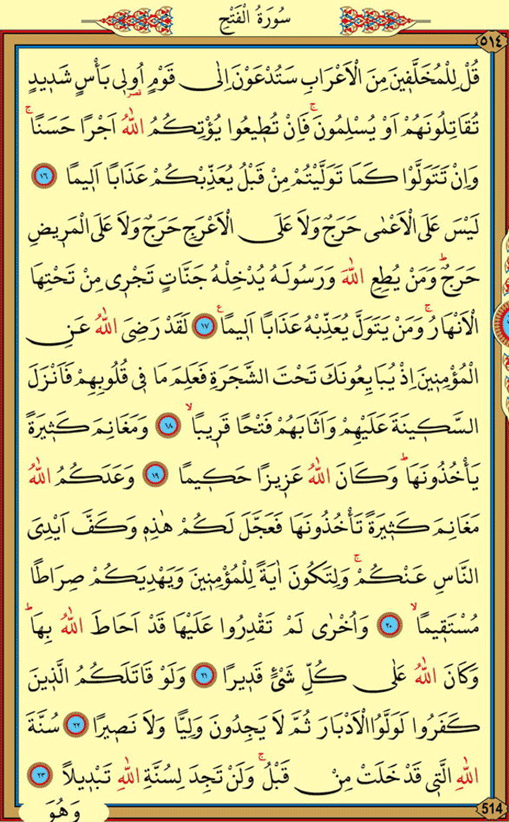 سُورَةُ الْفَتْحِ
٥١٤
قُلْ لِلْمُخَلَّفٖينَ مِنَ الْاَعْرَابِ سَتُدْعَوْنَ اِلٰى قَوْمٍ اُولٖى بَأْسٍ شَدٖيدٍ
تُقَاتِلُونَهُمْ اَوْ يُسْلِمُونَۚ فَاِنْ تُطٖيعُوا يُؤْتِكُمُ اللّٰهُ اَجْرًا حَسَنًاۚ
وَاِنْ تَتَوَلَّوْا كَمَا تَوَلَّيْتُمْ مِنْ قَبْلُ يُعَذِّبْكُمْ عَذَابًا اَلٖيمًا ١٦
لَيْسَ عَلَى الْاَعْمٰى حَرَجٌ وَلَا عَلَى الْاَعْرَجِ حَرَجٌ وَلَا عَلَى الْمَرٖيضِ
حَرَجٌؕ وَمَنْ يُطِعِ اللّٰهَ وَرَسُولَهُ يُدْخِلْهُ جَنَّاتٍ تَجْرٖى مِنْ تَحْتِهَا
الْاَنْهَارُۚ وَمَنْ يَتَوَلَّ يُعَذِّبْهُ عَذَابًا اَلٖيمًاؑ ١٧ لَقَدْ رَضِىَ اللّٰهُ عَنِ
الْمُؤْمِنٖينَ اِذْ يُبَايِعُونَكَ تَحْتَ الشَّجَرَةِ فَعَلِمَ مَا فٖى قُلُوبِهِمْ فَاَنْزَلَ
السَّكٖينَةَ عَلَيْهِمْ وَاَثَابَهُمْ فَتْحًا قَرٖيبًاۙ ١٨ وَمَغَانِمَ كَثٖيرَةً
يَأْخُذُونَهَاؕ وَكَانَ اللّٰهُ عَزٖيزًا حَكٖيمًا ١٩ وَعَدَكُمُ اللّٰهُ
مَغَانِمَ كَثٖيرَةً تَأْخُذُونَهَا فَعَجَّلَ لَكُمْ هٰذِهٖ وَكَفَّ اَيْدِىَ
النَّاسِ عَنْكُمْۚ وَلِتَكُونَ اٰيَةً لِلْمُؤْمِنٖينَ وَيَهْدِيَكُمْ صِرَاطًا
مُسْتَقٖيمًاۙ ٢٠ وَاُخْرٰى لَمْ تَقْدِرُوا عَلَيْهَا قَدْ اَحَاطَ اللّٰهُ بِهَاؕ
وَكَانَ اللّٰهُ عَلٰى كُلِّ شَىْءٍ قَدٖيرًا ٢١ وَلَوْ قَاتَلَكُمُ الَّذٖينَ
كَفَرُوا لَوَلَّوُا الْاَدْبَارَ ثُمَّ لَا يَجِدُونَ وَلِيًّا وَلَا نَصٖيرًا ٢٢ سُنَّةَ
اللّٰهِ الَّتٖى قَدْ خَلَتْ مِنْ قَبْلُۚ وَلَنْ تَجِدَ لِسُنَّةِ اللّٰهِ تَبْدٖيلًا ٢٣
وَهُوَ
514